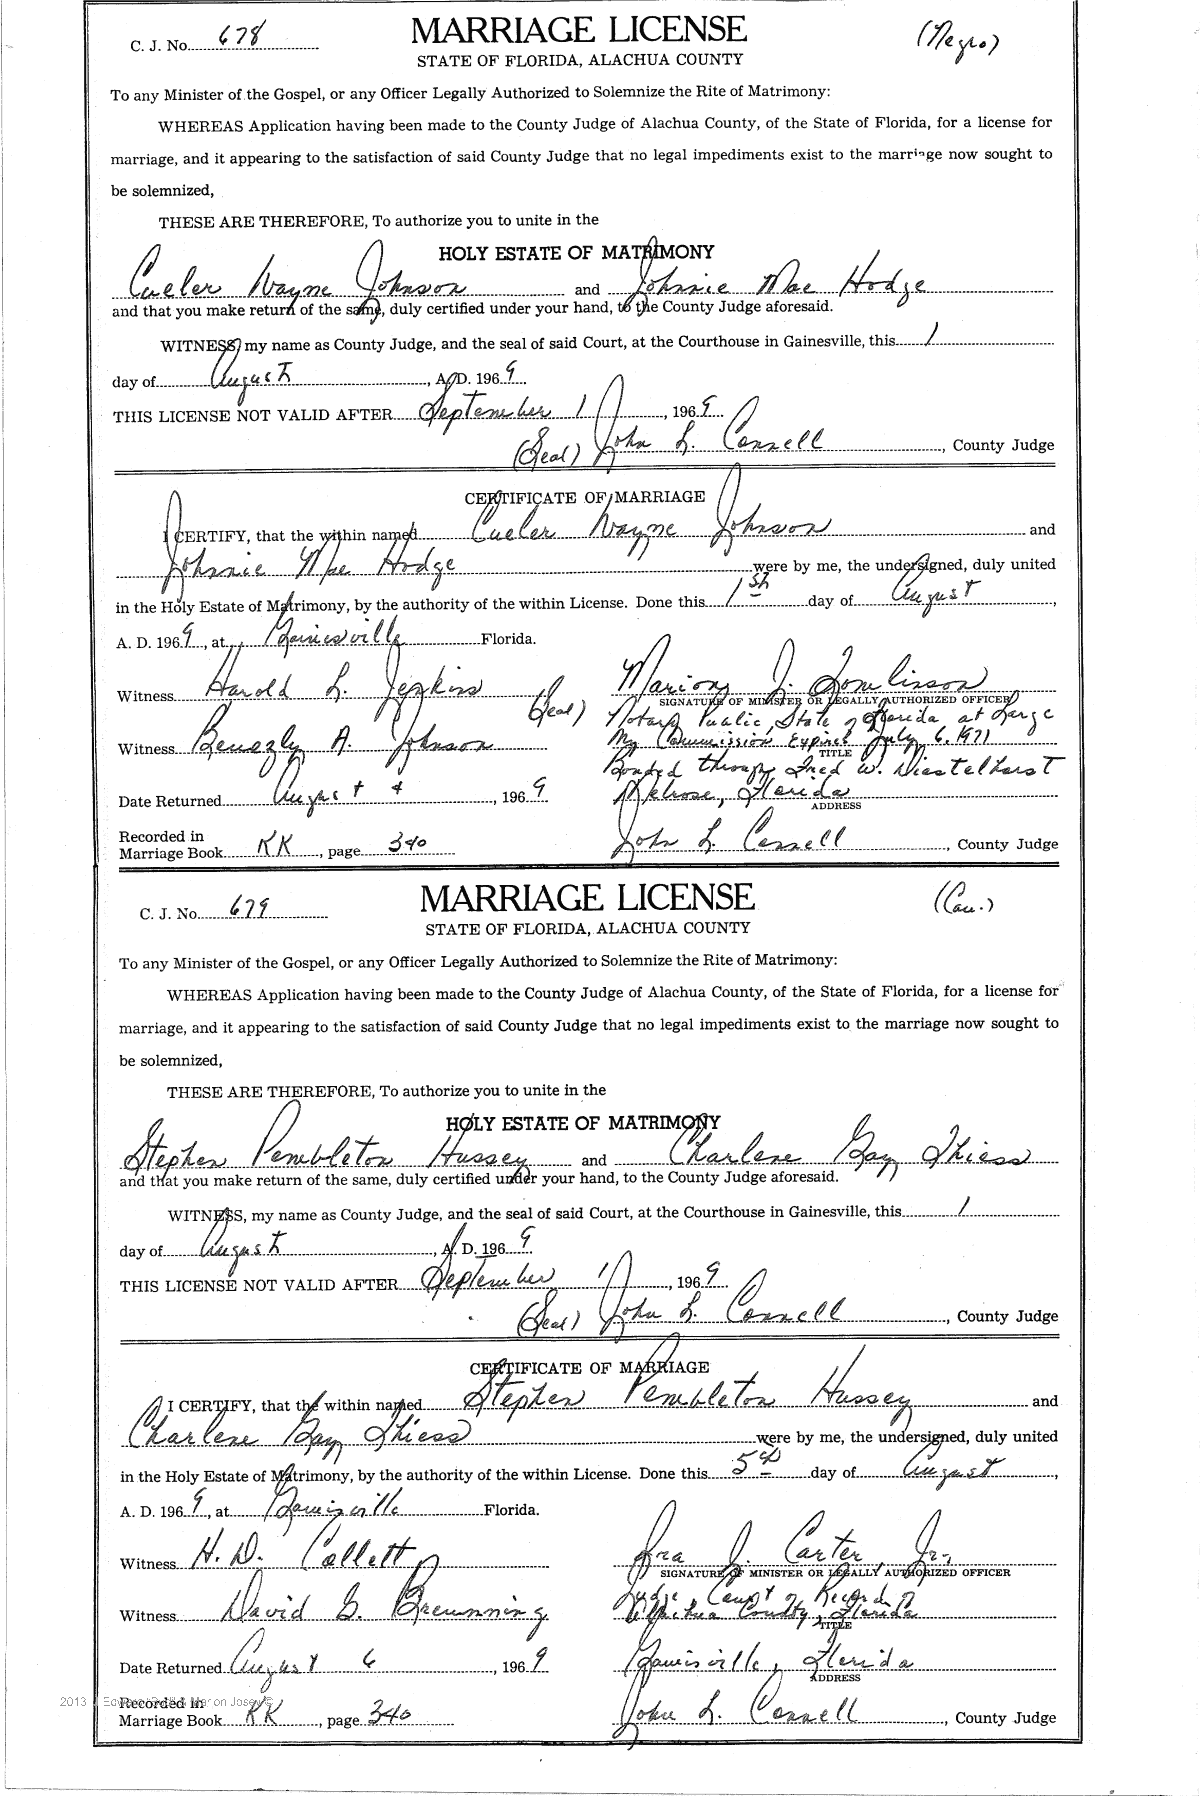 C. J. No. 678 MARRIAGE LICENSE (Negro)
STATE OF FLORIDA, ALACHUA COUNTY
To any Minister of the Gospel, or any Officer Legally Authorized to Solemnize the Rite of Matrimony:
WHEREAS Application having been made to the County Judge of Alachua County, of the State of Florida, for a license for
marriage, and it appearing to the satisfaction of said County Judge that no legal impediments exist to the marriage now sought to
be solemnized,
THESE ARE THEREFORE, To authorize you to unite in the
HOLY ESTATE OF MATRIMONY
Cueler Wayne Johnson and Johnnie Mae Hodge
and that you make return of the same, duly certified under your hand, to the County Judge aforesaid.
WITNESS, my name as County Judge, and the seal of said Court, at the Courthouse in Gainesville, this 1
day of August, A. D. 1969
THIS LICENSE NOT VALID AFTER September 1, 1969
(Seal) John L. Connell, County Judge
CERTIFICATE OF MARRIAGE
I CERTIFY, that the within named Cueler Wayne Johnson and
Johnnie Mae Hodge were by me, the undersigned, duly united
in the Holy Estate of Matrimony, by the authority of the within License. Done this 1st day of August,
A. D. 1969, at Gainesville Florida.
Witness Harold L. Jenkins (Seal) Marion J. Tomlinson
SIGNATURE OF MINISTER OR LEGALLY AUTHORIZED OFFICER
Notary Public, State of Florida at Large
Witness Beverly A. Johnson My Commission Expires July 6, 1971
TITLE
Bonded through Fred W. Diestelhorst
Date Returned August 4, 1969 Melrose, Florida
ADDRESS
Recorded in
Marriage Book KK, page 340 John L. Connell, County Judge
C. J. No. 679 MARRIAGE LICENSE (Cau.)
STATE OF FLORIDA, ALACHUA COUNTY
To any Minister of the Gospel, or any Officer Legally Authorized to Solemnize the Rite of Matrimony:
WHEREAS Application having been made to the County Judge of Alachua County, of the State of Florida, for a license for
marriage, and it appearing to the satisfaction of said County Judge that no legal impediments exist to the marriage now sought to
be solemnized,
THESE ARE THEREFORE, To authorize you to unite in the
HOLY ESTATE OF MATRIMONY
Stephen Pembleton Hussey and Charlene Gay Thiess
and that you make return of the same, duly certified under your hand, to the County Judge aforesaid.
WITNESS, my name as County Judge, and the seal of said Court, at the Courthouse in Gainesville, this 1
day of August, A. D. 1969
THIS LICENSE NOT VALID AFTER September 1, 1969
(Seal) John L. Connell, County Judge
CERTIFICATE OF MARRIAGE
I CERTIFY, that the within named Stephen Pembleton Hussey and
Charlene Gay Thiess were by me, the undersigned, duly united
in the Holy Estate of Matrimony, by the authority of the within License. Done this 5th day of August,
A. D. 1969, at Gainesville Florida.
Witness H. D. Collett Ira J. Carter, Jr.,
SIGNATURE OF MINISTER OR LEGALLY AUTHORIZED OFFICER
Judge Court of Record of
Witness David G. Brewnning Alachua County, Florida
TITLE
Date Returned August 6, 1969 Gainesville, Florida
ADDRESS
2013 Recorded in
Marriage Book KK, page 340 John L. Connell, County Judge